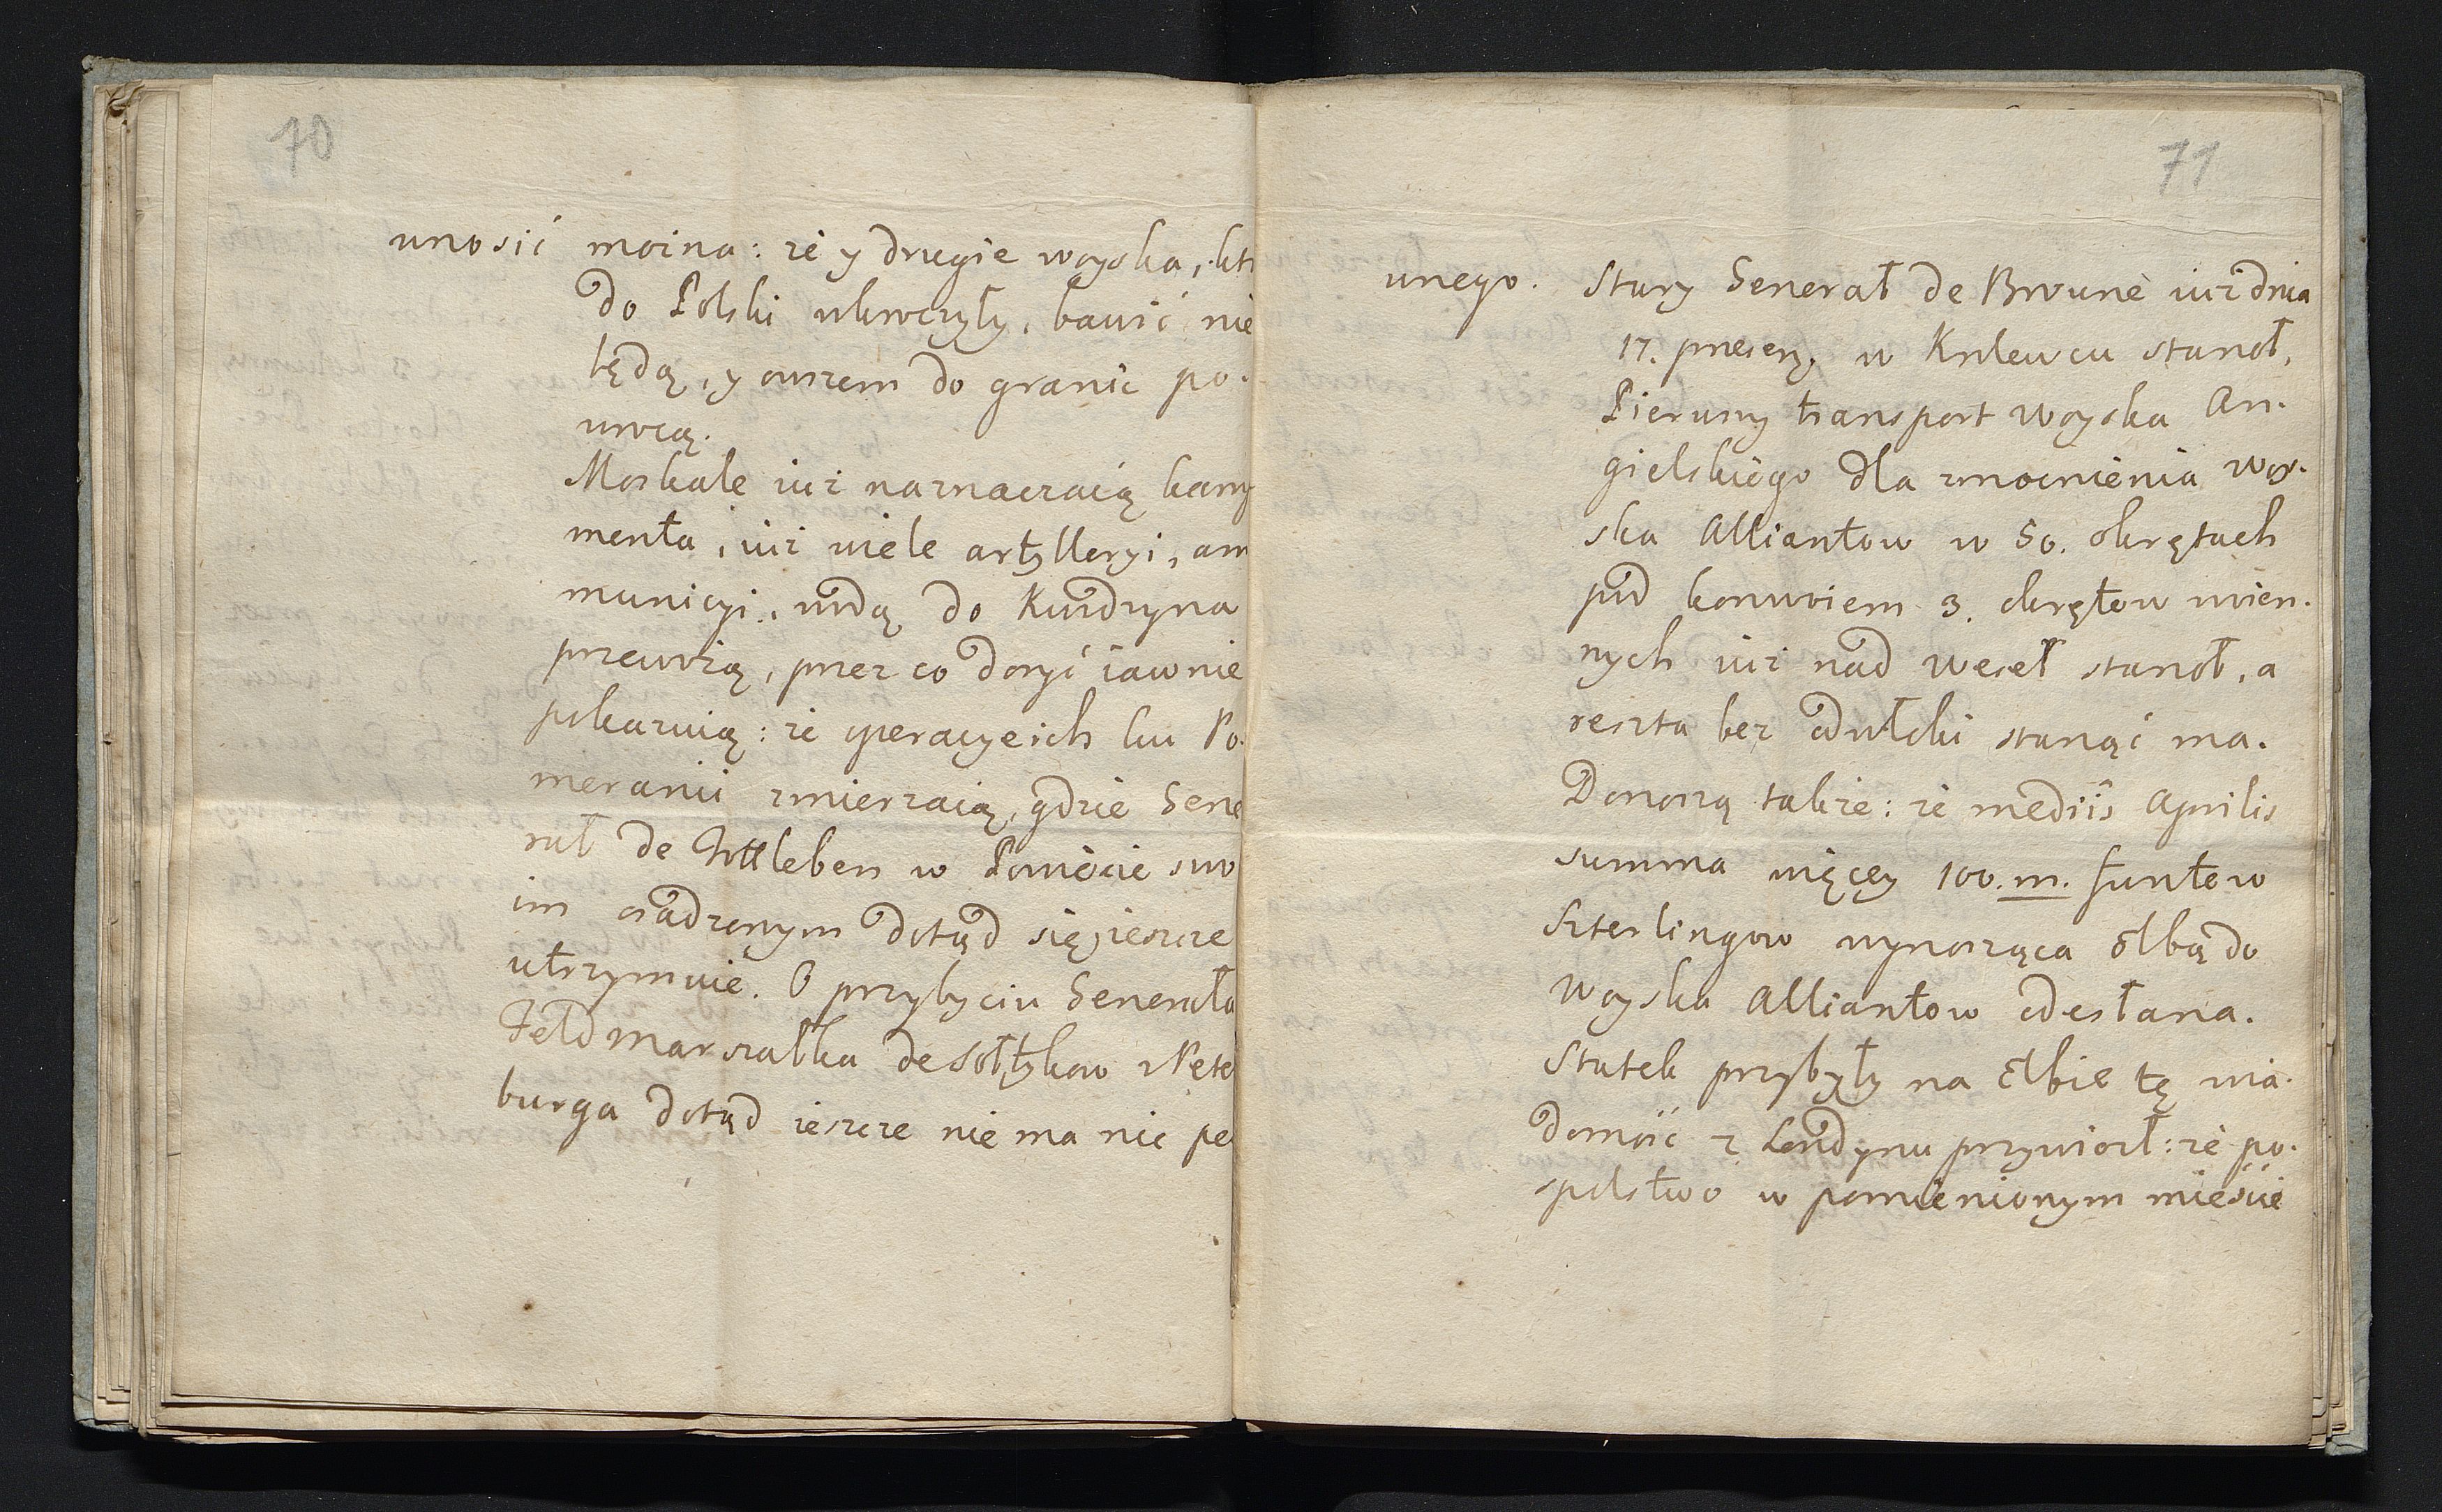 70
unosić moźna: źe y drugie woyska, kt
do Polski wkroczyły, bawić nie
będą, y owszem do granic po-
wrocą.
Moskale iuź naznaczaią kamy
menta, iuź wiele artylleryi, am
municyi, wodą do Kwidzyna
przewoźą, przez co dosyć iawnie
pokazuią: źe operacye ich ku Po-
meranii zmierzaią, gdzie Gene
rał de Tottleben w Powiecie swo
im osadzonym dotąd się ieszcze
utrzymuie. O przybyciu Generała
Feldmarszałka de Sołtykow z Pete
burga dotąd ieszcze nie ma nic pe
71
wnego. Stary Generał de Broune iuź dnia
17. præsen, w Krolewcu stanoł,
Pierwszy transport woyska An-
gielskiego dla zmocnienia woy-
ska Alliantow w 50. okrętach
pod konwoiem 3. okrętow woien-
nych iuź nad Weseł stanoł, a
reszta bez odwłoki stanąć ma.
Donoszą takźe: źe mediis Aprilis
summa więcey 100.m. funtow
Szterlingow wynosząca Elbą do
Woyska Alliantow odesłana.
Statek przybyły na Elbie tę wia-
domość z Londynu przywiozł: źe po-
spolstwo w pomienionym mieście